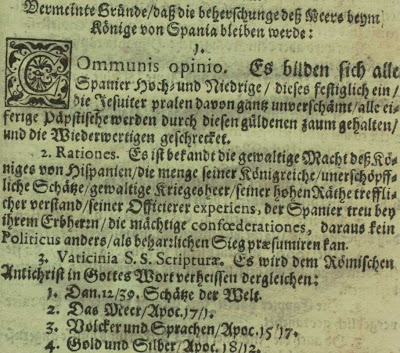 Vermeinte Gründe/daß die beherschunge deß Meers beym
Könige von Spania bleiben werde:
1.
Communis opinio. Es bilden sich alle
Spanier Hoch- und Niedrige/dieses festiglich ein/
die Jesuiter pralen davon gantz unverschämt/alle ei-
ferige Päpstische werden durch diesen güldenen zaum gehalten/
und die Wiederwertigen geschrecket.
2. Rationes. Es ist bekandt die gewaltige Macht deß Kö-
niges von Hispanien/die menge seiner Königreiche/unerschöpff-
liche Schätze/gewaltige Kriegesheer/seiner hohen Räthe treffli-
cher verstand/seiner Officierer experiens, der Spanier treu bey
ihrem Erbherrn/die mächtige confœderationes, daraus kein
Politicus anders/als beharrlichen Sieg præsumiren kan.
3. Vaticinia S. S. Scripturæ. Es wird dem Römischen
Antichrist in Gottes Wort verheissen dergleichen:
1. Dan.12/39. Schätze der Welt.
2. Das Meer/Apoc.17/1.
3. Völcker und Sprachen/Apoc.15/17.
4. Gold und Silber/Apoc.18/12.